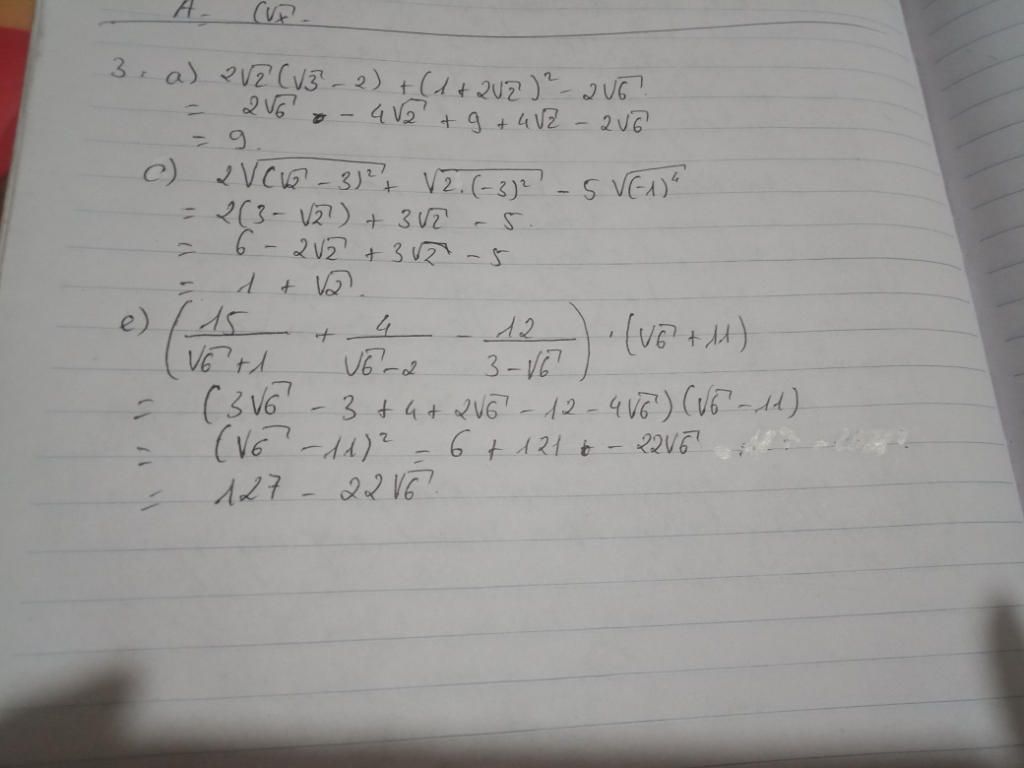 A = (√x
3. a) 2√2(√3 - 2) + (1 + 2√2)² - 2√6.
= 2√6 - 4√2 + 9 + 4√2 - 2√6
= 9.
c) 2√(√2 - 3)² + √2.(-3)² - 5√(-1)⁴
= 2(3 - √2) + 3√2 - 5.
= 6 - 2√2 + 3√2 - 5
= 1 + √2.
e) (15/(√6 + 1) + 4/(√6 - 2) - 12/(3 - √6)) . (√6 + 11)
= (3√6 - 3 + 4 + 2√6 - 12 - 4√6)(√6 - 11)
= (√6 - 11)² = 6 + 121 - 22√6
= 127 - 22√6.